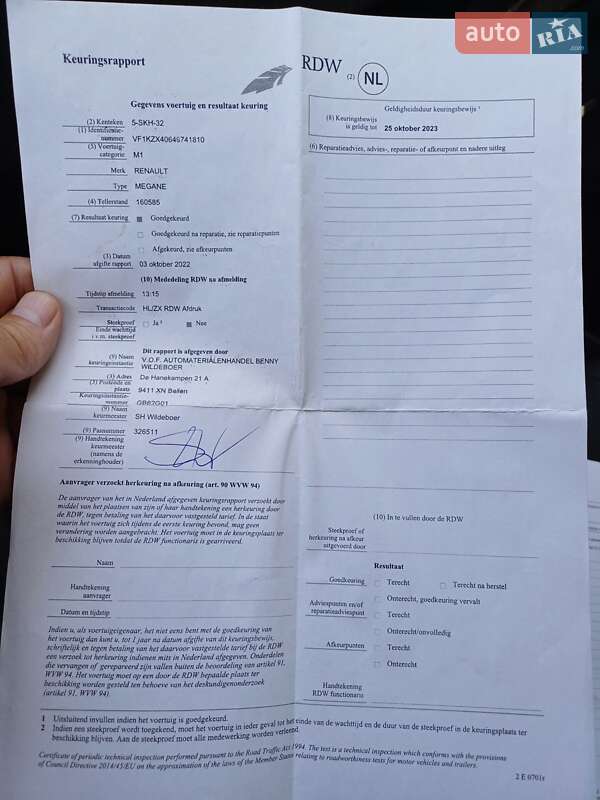 auto RIA .com
Keuringsrapport
RDW (2) NL
Gegevens voertuig en resultaat keuring
(2) Kenteken 5-SKH-32
(1) Identificatie-
nummer VF1KZX40646741810
(5) Voertuig-
categorie M1
Merk RENAULT
Type MEGANE
(4) Tellerstand 160585
(7) Resultaat keuring Goedgekeurd
Goedgekeurd na reparatie, zie reparatiepunten
Afgekeurd, zie afkeurpunten
(3) Datum
afgifte rapport 03 oktober 2022
(10) Mededeling RDW na afmelding
Tijdstip afmelding 13:15
Transactiecode HL/ZX RDW Afdruk
Steekproef Ja ² Nee
Einde wachttijd
i.v.m. steekproef
Dit rapport is afgegeven door
(9) Naam
keuringsinstantie V.O.F. AUTOMATERIALENHANDEL BENNY
WILDEBOER
(3) Adres De Hanekampen 21 A
(3) Postcode en
plaats 9411 XN Beilen
Keuringsinstantie-
nummer
(9) Naam
keurmeester SH Wildeboer
(9) Pasnummer 326511
(9) Handtekening
keurmeester
(namens de
erkenninghouder)
Aanvrager verzoekt herkeuring na afkeuring (art. 90 WVW 94)
De aanvrager van het in Nederland afgegeven keuringsrapport verzoekt door
middel van het plaatsen van zijn of haar handtekening een herkeuring door
de RDW, tegen betaling van het daarvoor vastgestelde tarief. In de staat
waarin het voertuig zich tijdens de eerste keuring bevond, mag geen
verandering worden aangebracht. Het voertuig moet in de keuringsplaats ter
beschikking blijven totdat de RDW functionaris is gearriveerd.
Naam
Handtekening
aanvrager
Datum en tijdstip
Indien u, als voertuigeigenaar, het niet eens bent met de goedkeuring van
het voertuig dan kunt u, tot 1 jaar na datum afgifte van dit keuringsbewijs,
schriftelijk en tegen betaling van het daarvoor vastgestelde tarief bij de RDW
een verzoek tot herkeuring indienen mits in Nederland afgegeven. Onderdelen
die vervangen of gerepareerd zijn vallen buiten de beoordeling van artikel 91,
WVW 94. Het voertuig moet op een door de RDW bepaalde plaats ter
beschikking worden gesteld ten behoeve van het deskundigenonderzoek
(artikel 91, WVW 94).
Geldigheidsduur keuringsbewijs ¹
(8) Keuringsbewijs
is geldig tot 25 oktober 2023
(6) Reparatieadvies, advies-, reparatie- of afkeurpunt en nadere uitleg
(10) In te vullen door de RDW
Steekproef of
herkeuring na afkeur
uitgevoerd door
Resultaat
Goedkeuring Terecht Terecht na herstel
Onterecht, goedkeuring vervalt
Adviespunten en/of
reparatieadviespunt Terecht
Onterecht/onvolledig
Afkeurpunten Terecht
Onterecht
Handtekening
RDW functionaris
1 Uitsluitend invullen indien het voertuig is goedgekeurd.
2 Indien een steekproef wordt toegekend, moet het voertuig in ieder geval tot het einde van de wachttijd en de duur van de steekproef in de keuringsplaats ter
beschikking blijven. Aan de steekproef moet alle medewerking worden verleend.
Certificate of periodic technical inspection performed pursuant to the Road Traffic Act 1994. The test is a technical inspection which conforms with the provisions
of Council Directive 2014/45/EU on the approximation of the laws of the Member States relating to roadworthiness tests for motor vehicles and trailers.
2 E 0701s